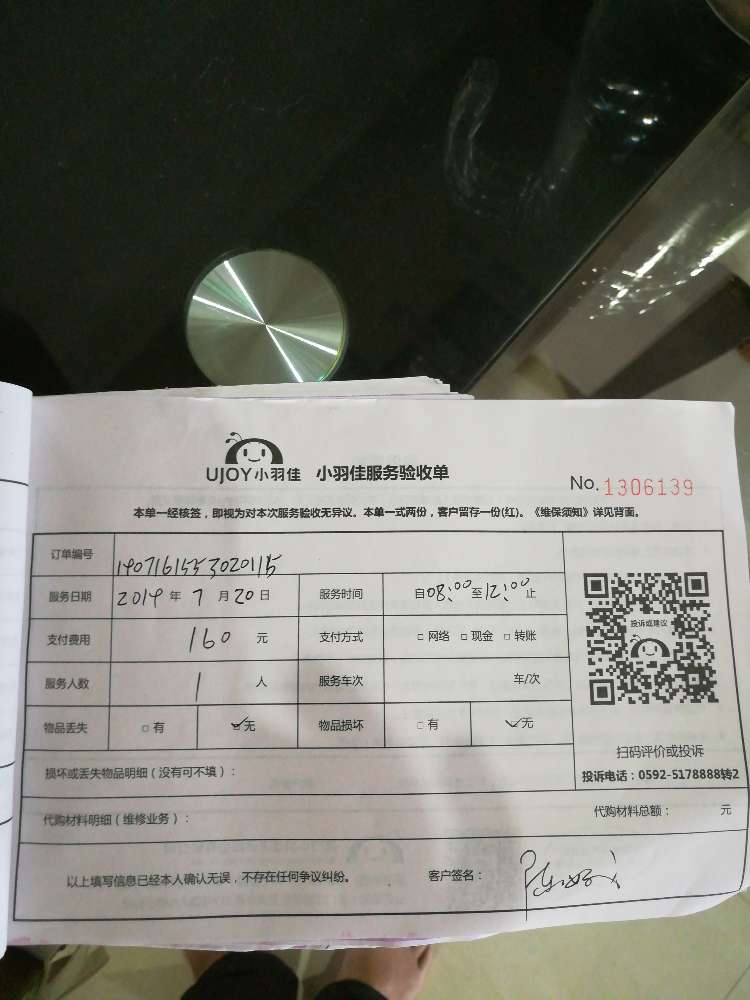 UJOY小羽佳 小羽佳服务验收单
No. 1306139
本单一经核签，即视为对本次服务验收无异议。本单一式两份，客户留存一份(红)。《维保须知》详见背面。
订单编号 1407161553020115
服务日期 2019 年 7 月 20 日 服务时间 自08:00至12:00止
投诉或建议
支付费用 160 元 支付方式 □ 网络 □ 现金 □ 转账
服务人数 1 人 服务车次 车/次
物品丢失 □ 有 ☑无 物品损坏 □ 有 ☑无
扫码评价或投诉
损坏或丢失物品明细（没有可不填）：
投诉电话：0592-5178888转2
代购材料明细（维修业务）： 代购材料总额： 元
以上填写信息已经本人确认无误，不存在任何争议纠纷。 客户签名：